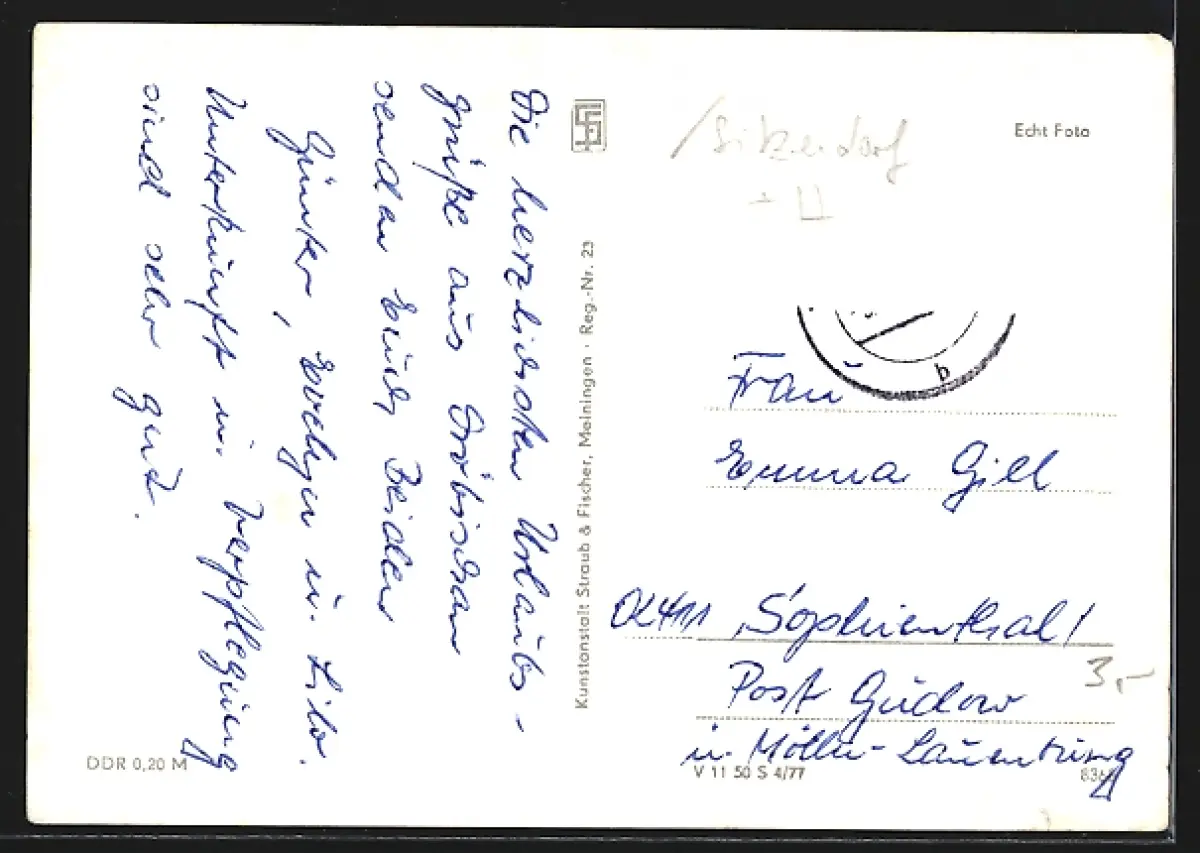 Die herzlichsten Urlaubs-
grüße aus Dröbischau
senden Euch Beiden
Günter, Evelyn u. Lilo.
Unterkunft u. Verpflegung
sind sehr gut.
Kunstanstalt Straub & Fischer, Meiningen · Reg.-Nr. 23
/Sitzendorf
+ II
Echt Foto
b
Frau
Emma Gill
2411 Sophienthal/
Post Gudow
3,-
in Mölln-Lauenburg
DDR 0,20 M
V 11 50 S 4/77